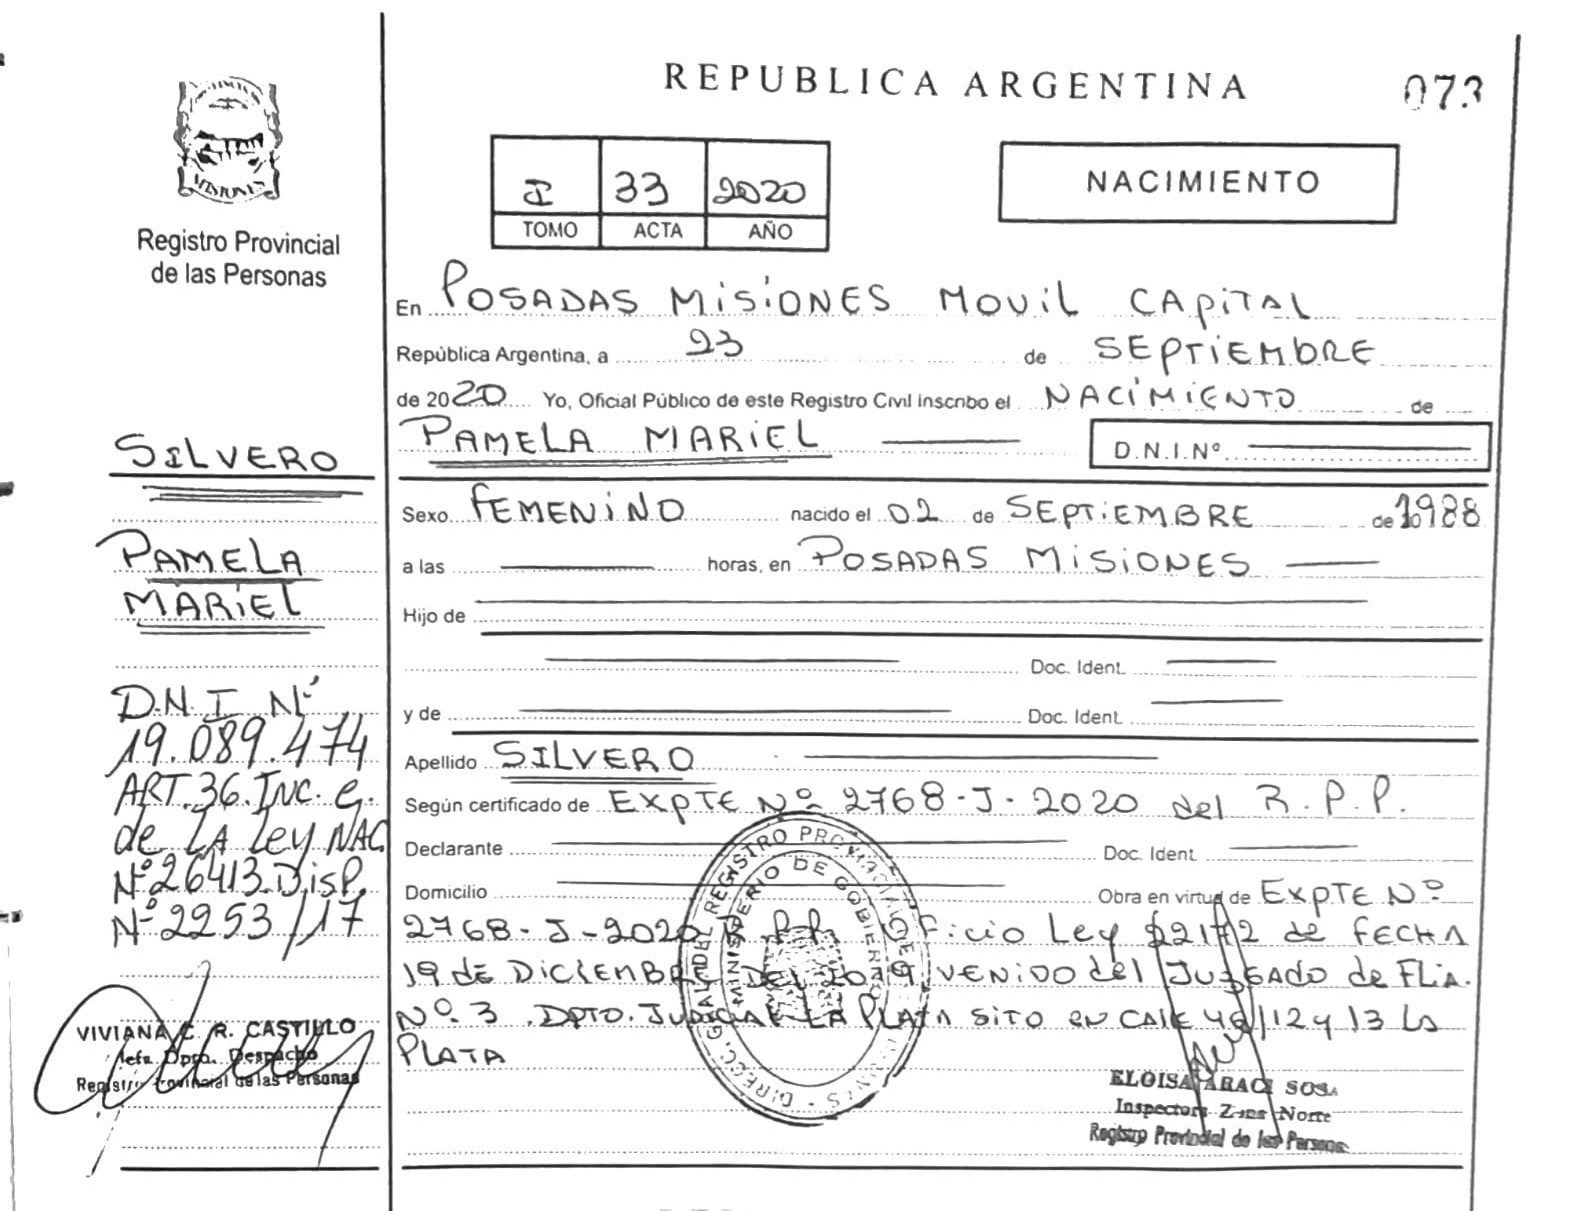 REPUBLICA ARGENTINA
073
MISIONES
Registro Provincial
de las Personas
I 33 2020
TOMO ACTA AÑO
NACIMIENTO
En POSADAS MISIONES MOVIL CAPITAL
República Argentina, a 23 de SEPTIEMBRE
de 2020 Yo, Oficial Público de este Registro Civil inscribo el NACIMIENTO de
PAMELA MARIEL
D.N.I.Nº
Sexo FEMENINO nacido el 02 de SEPTIEMBRE de 1988
a las horas, en POSADAS MISIONES
Hijo de
Doc. Ident.
y de Doc. Ident.
Apellido SILVERO
Según certificado de EXPTE Nº 2768-J-2020 del R.P.P.
Declarante Doc. Ident.
Domicilio Obra en virtud de EXPTE Nº
2768-J-2020 R.P.P. OFicio Ley 22172 de FECHA
19 de DICIEMBRE DEL 2019 VENIDO del JUZGADO de FLIA.
Nº 3 DPTO. JUDICIAL LA PLATA SITO en CALLE 46/12 y 13 La
PLATA
SILVERO
PAMELA
MARIEL
D.N.I Nº
19.089.474
ART.36.INC.e.
de LA Ley NAC
Nº26413.DisP.
Nº2253/17
VIVIANA C. R. CASTILLO
Jefa Dpto. Despacho
Registro Provincial de las Personas
DIRECC. GRAL DEL REGISTRO PROVINCIAL DE
MINISTERIO DE GOBIERNO
ELOISA ARACI SOSA
Inspectora Zona Norte
Registro Provincial de las Personas